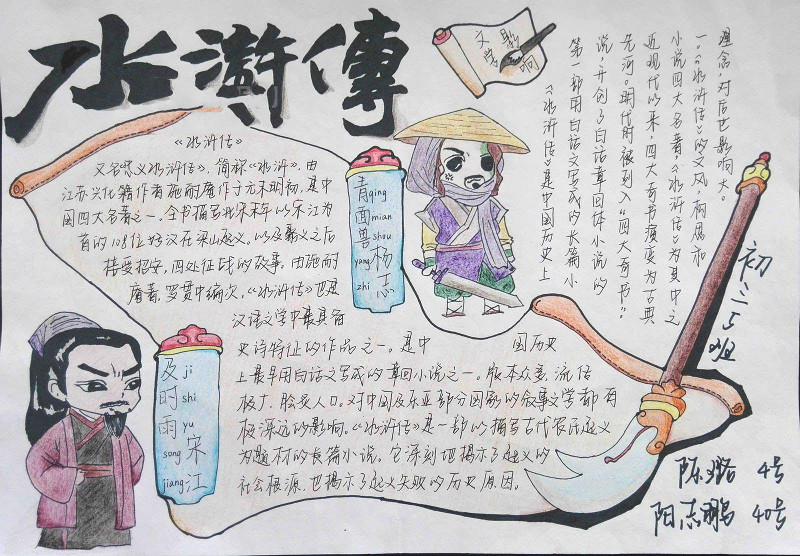 水滸傳
文学影响
《水浒传》
又名《忠义水浒传》,简称《水浒》,由
江苏兴化籍作者施耐庵作于元末明初,是中
国四大名著之一。全书描写北宋末年以宋江为
首的108位好汉在梁山起义,以及聚义之后
接受招安,四处征战的故事。由施耐
庵著,罗贯中编次。《水浒传》也是
汉语文学中最具备
史诗特征的作品之一。是中国历史
上最早用白话文写成的章回小说之一。版本众多,流传
极广,脍炙人口。对中国及东亚部分国家的叙事文学都有
极深远的影响。《水浒传》是一部以描写古代农民起义
为题材的长篇小说。它深刻地揭示了起义的
社会根源,也揭示了起义失败的历史原因。
青qing
面mian
兽shou
yang杨
zhi志
及ji
时shi
雨yu
song宋
jiang江
《水浒传》是中国历史上
第一部用白话文写成的长篇小
说,开创了白话章回体小说的
先河。明代时被列入“四大奇书”。
近现代以来,四大奇书演变为古典
小说四大名著,《水浒传》为其中之
一。《水浒传》的文风、构思和
理念,对后世影响大。
初二5班
陈璐 4号
阳志鹏 40号